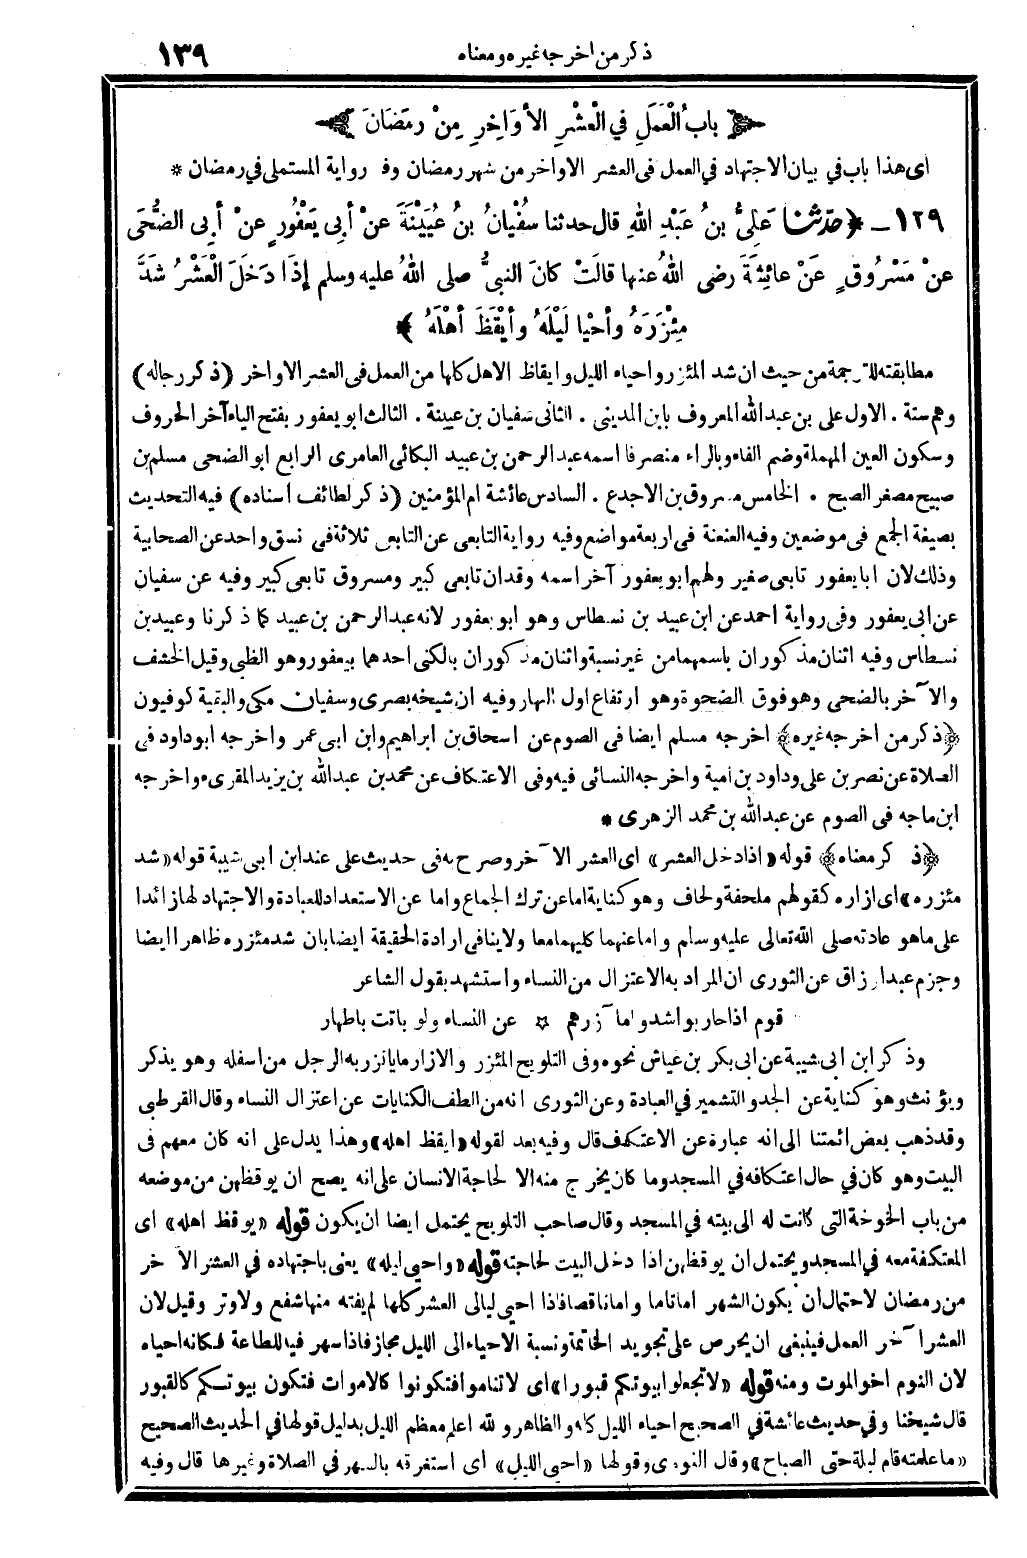 ذكر من اخرجه غيره ومعناه ١٣٩
﴿ بابُ الْعَمَلِ فِي الْعَشْرِ الأَوَاخِرِ مِنْ رمَضَانَ ﴾
اى هذا باب في بيان الاجتهاد في العمل فى العشر الاواخر من شهر رمضان وفى رواية المستملى في رمضان *
١٢٩ ـ ﴿ حَدَّثَنَا عَلِيُّ بنُ عَبْدِ اللهِ قال حدثنا سُفْيَانُ بنُ عُيَيْنَةَ عَنْ أبِي يَعْفُورٍ عنْ أبِى الضُّحَى
عنْ مَسْرُوقٍ عَنْ عائِشَةَ رضى اللهُ عنها قالَتْ كانَ النبىُّ صلى اللهُ عليه وسلم إِذَا دَخَلَ الْعَشْرُ شَدَّ
مِئْزَرَهُ وأحْيا لَيْلَهُ وأيْقَظَ أهْلَهُ ﴾
مطابقته للترجمة من حيث ان شد المئزر واحياء الليل وايقاظ الاهل كلها من العمل فى العشر الاواخر (ذكر رجاله)
وهم ستة . الاول على بن عبدالله المعروف بابن المدينى . الثانى سفيان بن عيينة . الثالث ابو يعفور بفتح الياء آخر الحروف
وسكون العين المهملة وضم الفاء وبالراء منصرفا اسمه عبد الرحمن بن عبيد البكائى العامرى الرابع ابو الضحى مسلم بن
صبيح مصغر الصبح . الخامس مسروق بن الاجدع . السادس عائشة ام المؤمنين (ذكر لطائف اسناده) فيه التحديث
بصيغة الجمع فى موضعين وفيه العنعنة فى اربعة مواضع وفيه رواية التابعى عن التابعى ثلاثة فى نسق واحد عن الصحابية
وذلك لان ابا يعفور تابعى صغير ولهم ابو يعفور آخر اسمه وقدان تابعى كبير ومسروق تابعى كبير وفيه عن سفيان
عن ابى يعفور وفى رواية احمد عن ابن عبيد بن نسطاس وهو ابو يعفور لانه عبد الرحمن بن عبيد كما ذكرنا وعبيد بن
نسطاس وفيه اثنان مذكوران باسمهما من غير نسبة واثنان مذكوران بالكنى احدهما بيعفور وهو الظبى وقيل الخشف
والآخر بالضحى وهو فوق الضحوة وهو ارتفاع اول النهار وفيه ان شيخه بصرى وسفيان مكى والبقية كوفيون
﴿ ذكر من اخرجه غيره ﴾ اخرجه مسلم ايضا فى الصوم عن اسحاق بن ابراهيم وابن ابى عمر واخرجه ابو داود فى
الصلاة عن نصر بن على وداود بن امية واخرجه النسائى فيه وفى الاعتكاف عن محمد بن عبدالله بن يزيد المقرىء واخرجه
ابن ماجه فى الصوم عن عبدالله بن محمد الزهرى *
﴿ ذكر معناه ﴾ قوله «اذا دخل العشر» اى العشر الآخر وصرح به فى حديث على عند ابن ابى شيبة قوله «شد
مئزره» اى ازاره كقولهم ملحفة ولحاف وهو كناية اما عن ترك الجماع واما عن الاستعداد للعبادة والاجتهاد لها زائدا
على ما هو عادته صلى الله تعالى عليه وسلم واما عنهما كليهما معا ولا ينافى ارادة الحقيقة ايضا بان شد مئزره ظاهرا ايضا
وجزم عبد الرزاق عن الثورى ان المراد به الاعتزال من النساء واستشهد بقول الشاعر
قوم اذا حاربوا شدوا مآزرهم ☆ عن النساء ولو باتت باطهار
وذكر ابن ابى شيبة عن ابى بكر بن عياش نحوه وفى التلويح المئزر والازار ما يأتزر به الرجل من اسفله وهو يذكر
ويؤنث وهو كناية عن الجد والتشمير في العبادة وعن الثورى انه من الطف الكنايات عن اعتزال النساء وقال القرطبى
وقد ذهب بعض ائمتنا الى انه عبارة عن الاعتكاف قال وفيه بعد لقوله «ايقظ اهله» وهذا يدل على انه كان معهم فى
البيت وهو كان في حال اعتكافه في المسجد وما كان يخرج منه الا لحاجة الانسان على انه يصح ان يوقظهن من موضعه
من باب الخوخة التى كانت له الى بيته في المسجد وقال صاحب التلويح يحتمل ايضا ان يكون قوله «يوقظ اهله» اى
المعتكفة معه في المسجد ويحتمل ان يوقظهن اذا دخل البيت لحاجته قوله «واحيى ليله» يعنى باجتهاده في العشر الآخر
من رمضان لاحتمال أن يكون الشهر اما تاما واما ناقصا فاذا احيى ليالى العشر كلها لم يفته منها شفع ولا وتر وقيل لان
العشر آخر العمل فينبغى ان يحرص على تجويد الخاتمة ونسبة الاحياء الى الليل مجاز فاذا سهر فيه للطاعة فكانه احياه
لان النوم اخو الموت ومنه قوله «لا تجعلوا بيوتكم قبورا» اى لا تناموا فتكونوا كالاموات فتكون بيوتكم كالقبور
قال شيخنا وفي حديث عائشة في الصحيح احياء الليل كله والظاهر والله اعلم معظم الليل بدليل قولها في الحديث الصحيح
«ما علمته قام ليلة حتى الصباح» وقال النووى وقولها «احيى الليل» اى استغرقه بالسهر في الصلاة وغيرها قال وفيه